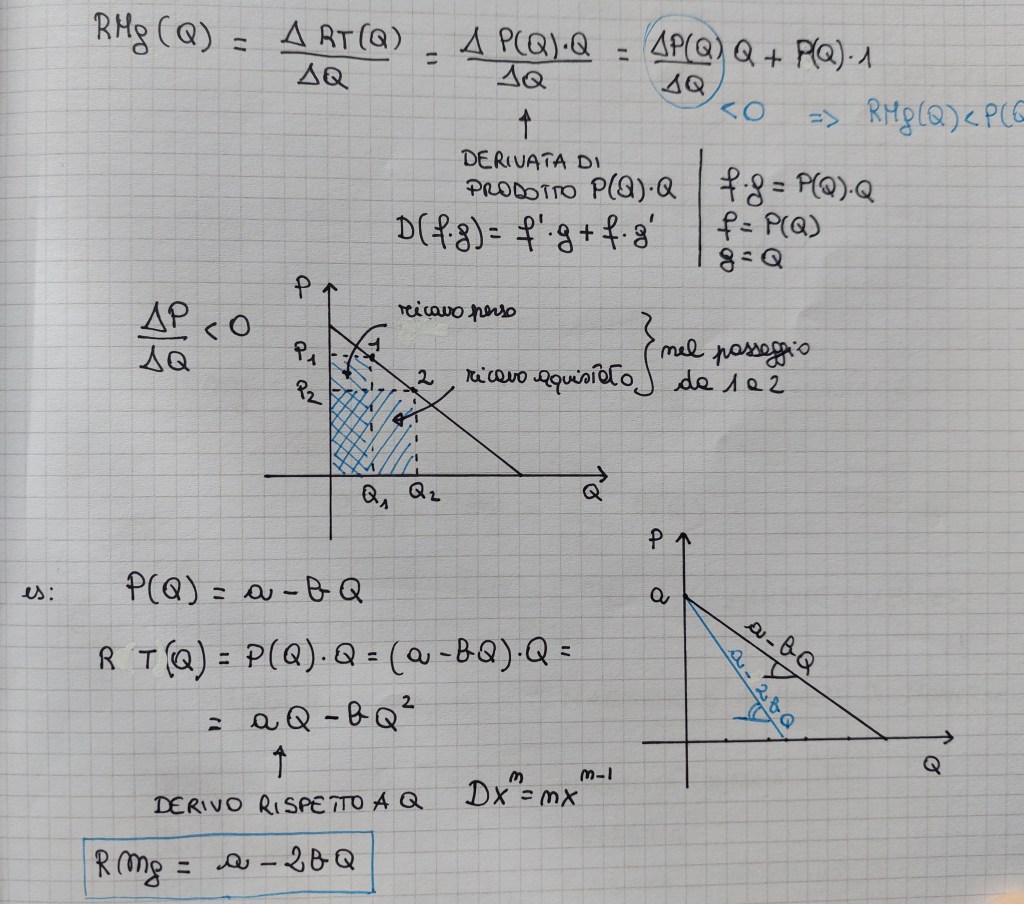 RMg(Q) = ΔRT(Q)/ΔQ = ΔP(Q)·Q/ΔQ = ΔP(Q)/ΔQ Q + P(Q)·1
<0 => RMg(Q)<P(Q
↑
DERIVATA DI
PRODOTTO P(Q)·Q
D(f·g) = f'·g + f·g'
f·g = P(Q)·Q
f = P(Q)
g = Q
ΔP/ΔQ < 0
P
ricavo perso
P1
1
P2
2
ricavo aquisito
} nel passaggio
da 1 a 2
Q1 Q2 Q
es: P(Q) = a - bQ
R T(Q) = P(Q)·Q = (a - bQ)·Q =
= aQ - bQ²
↑
DERIVO RISPETTO A Q
Dxᵐ = mxᵐ⁻¹
RMg = a - 2bQ
P
a
a - bQ
a - 2bQ
Q